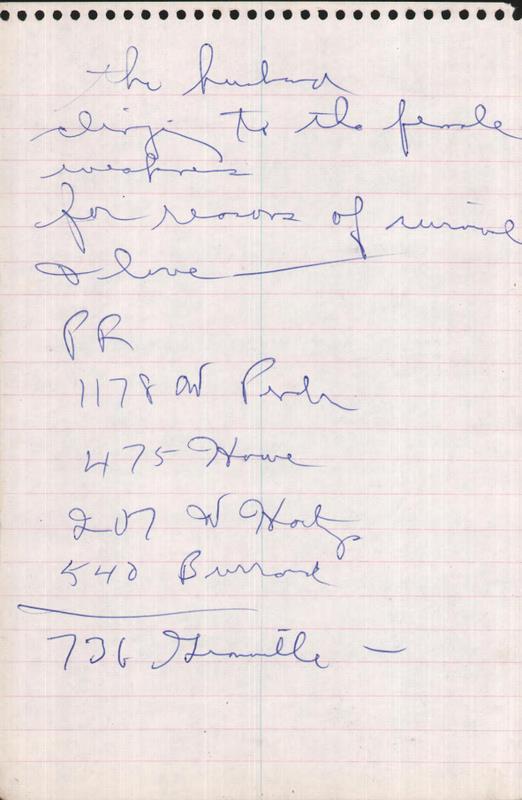 the husband
clinging to the female
weakness
for reasons of survival
& love
PR
1178 W Pender
475 Howe
207 W Hastings
540 Burrard
736 Granville —